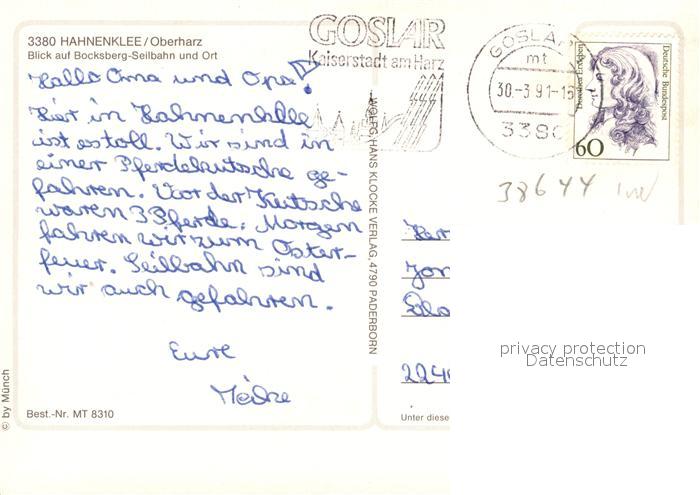 3380 HAHNENKLEE/Oberharz
Blick auf Bocksberg-Seilbahn und Ort
Hallo Oma und Opa!
Hier in Hahnenklee
ist es toll. Wir sind in
einer Pferdekutsche ge-
fahren. Vor der Kutsche
waren 3 Pferde. Morgen
fahren wir zum Oster-
feuer. Seilbahn sind
wir auch gefahren.
Eure
Meike
Best.-Nr. MT 8310
© by Münch
WOLFG. HANS KLOCKE VERLAG, 4790 PADERBORN
GOSLAR
Kaiserstadt am Harz
GOSLAR
mt
30.-3.91-16
3380
Deutsche Bundespost
60
38644
Her
Jon
224
Unter diese
privacy protection
Datenschutz